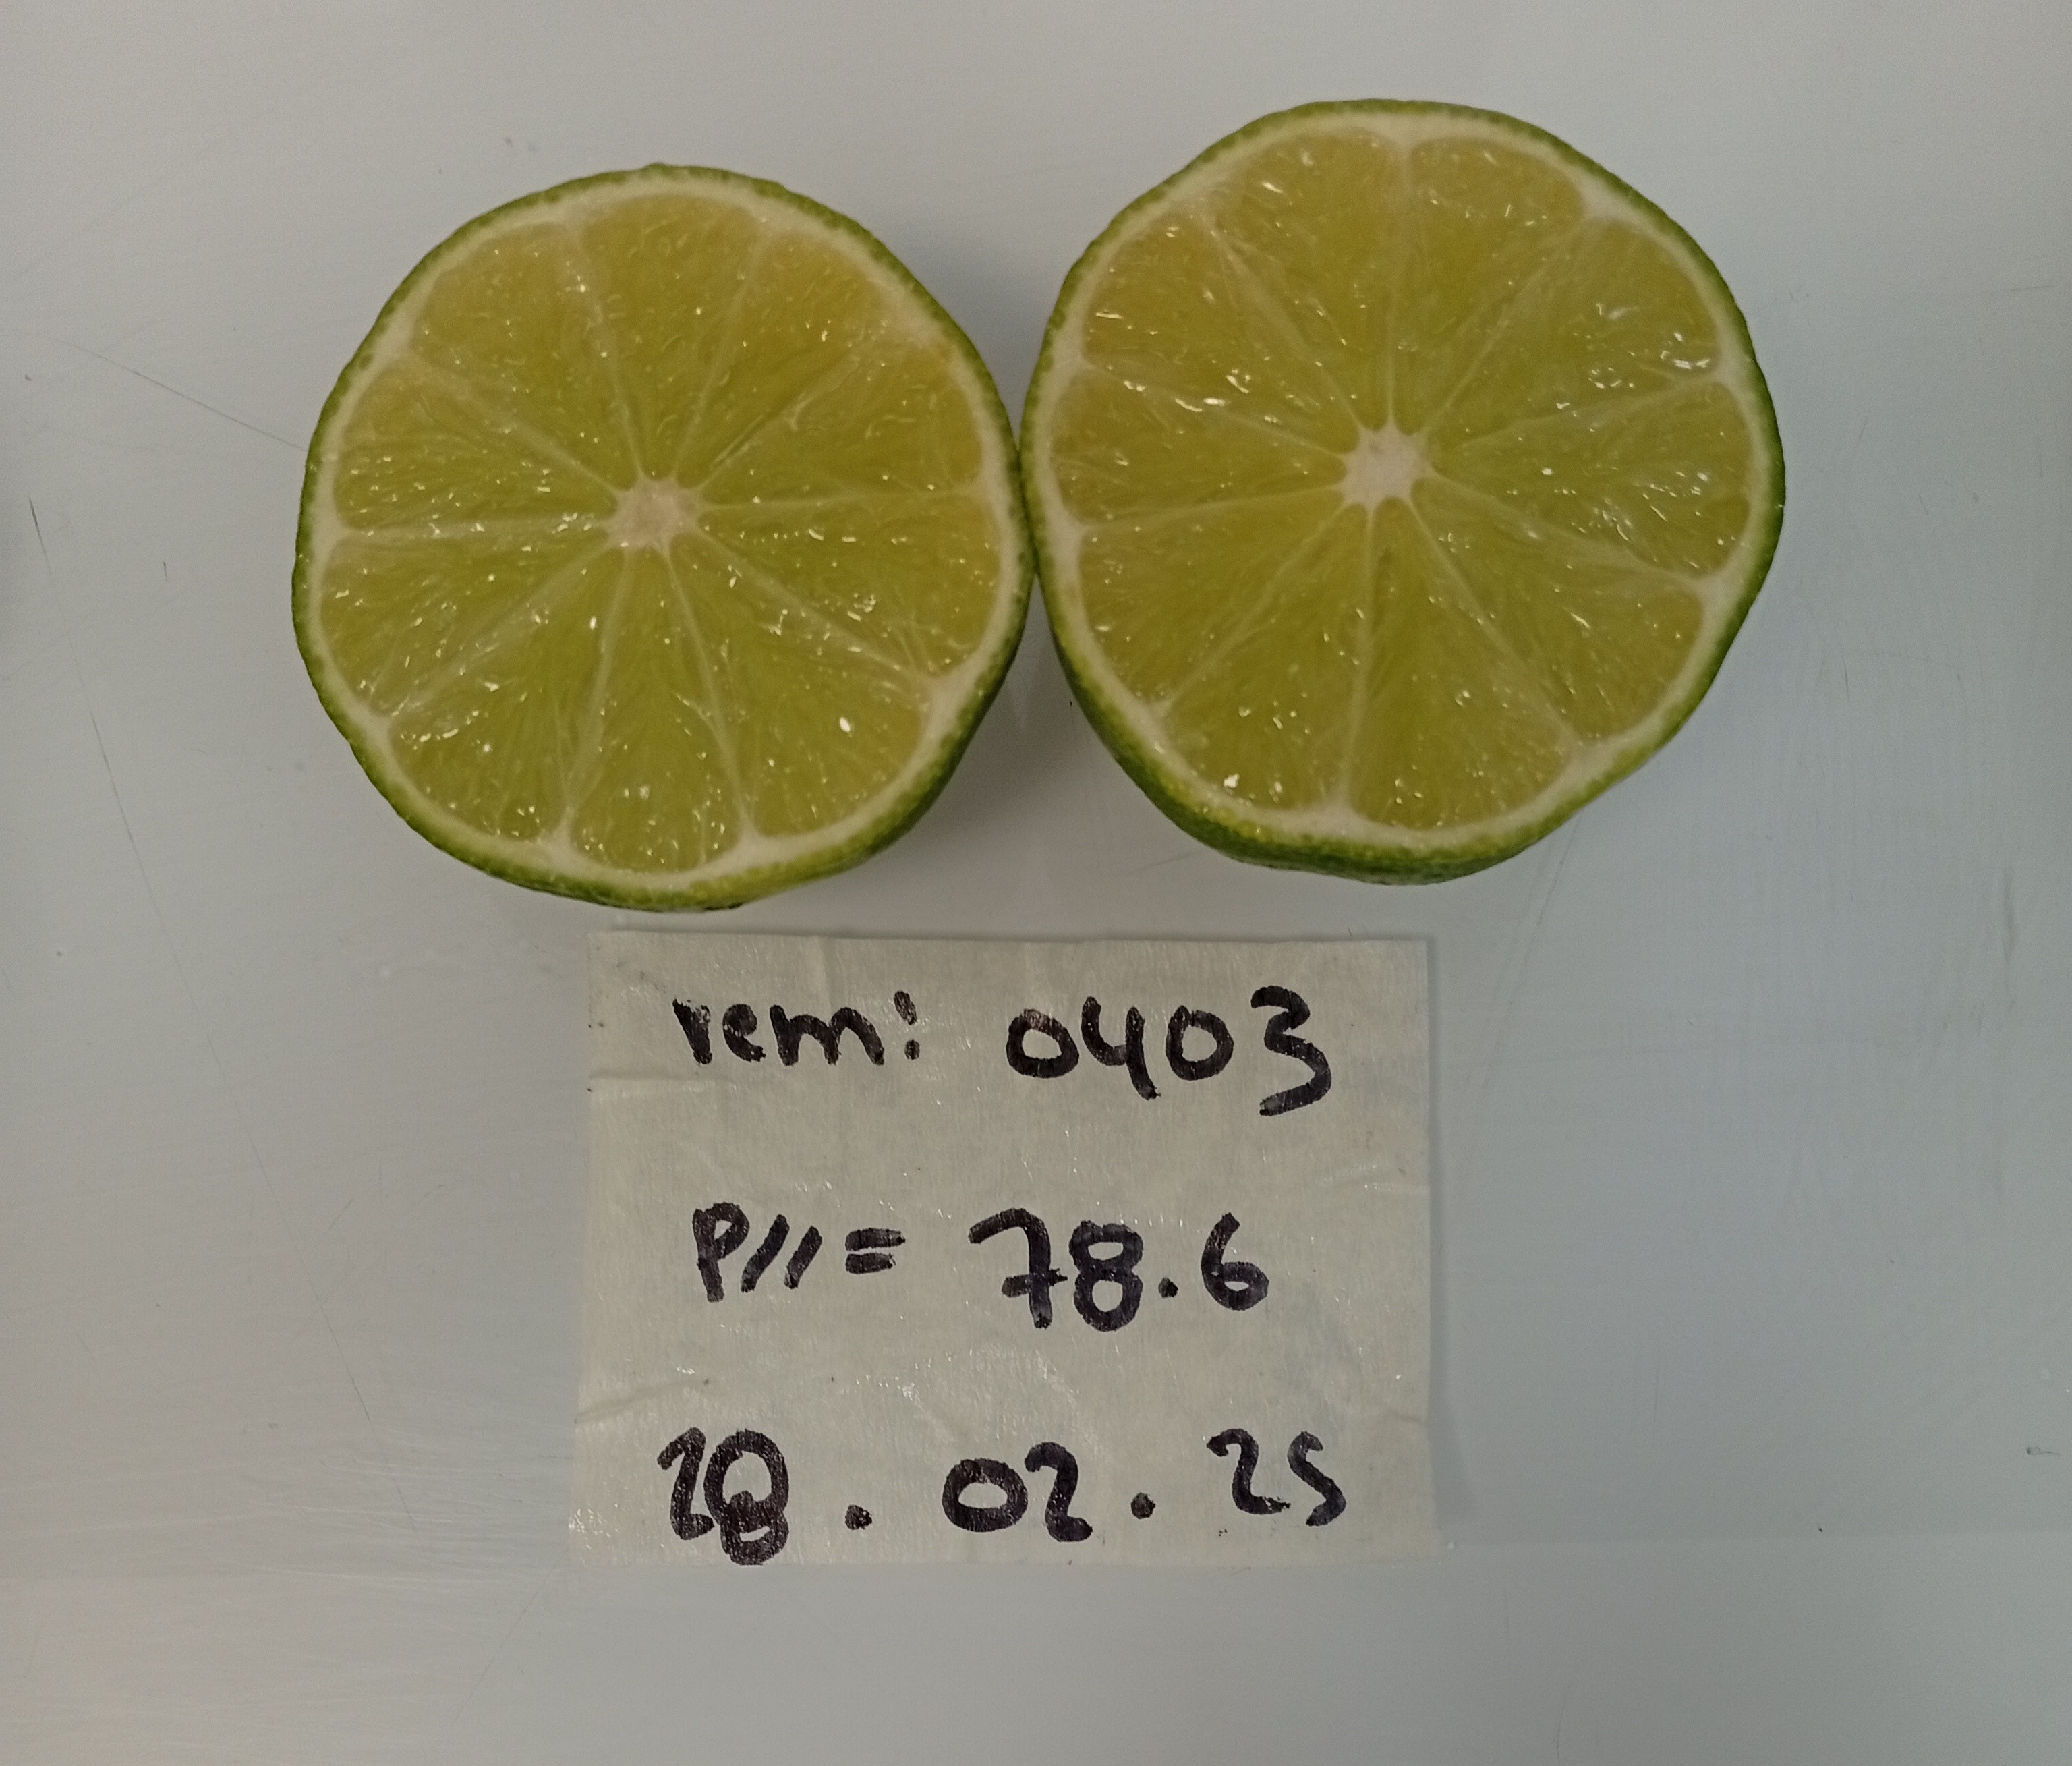 rem: 0403
P// = 78.6
28 . 02 . 25